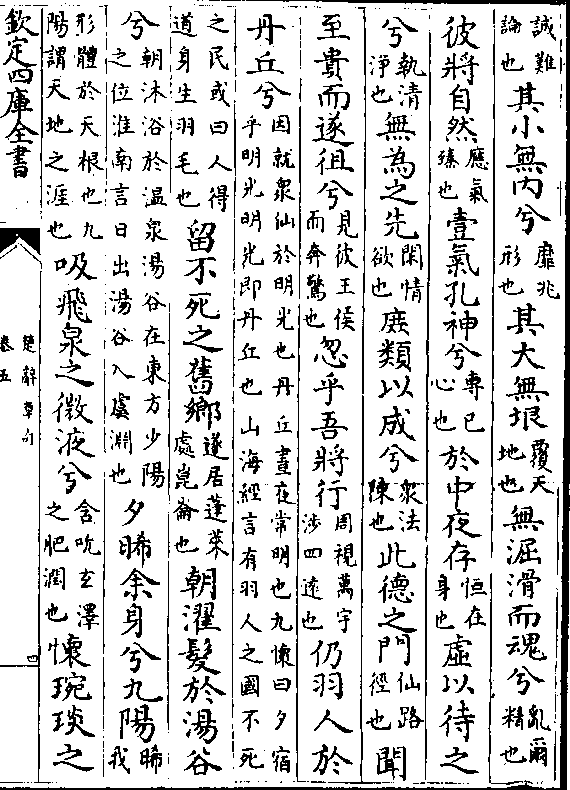 誠難論也其小無内兮靡兆形也其大無垠覆天地也無淈滑而魂兮亂爾精也
彼將自然應氣臻也壹氣孔神兮專己心也於中夜存恒在身也虛以待之
兮執清淨也無為之先閑情欲也庶類以成兮衆法陳也此德之門仙路徑也聞
至貴而遂徂兮見彼王侯而奔驚也忽乎吾將行周視萬宇涉四遠也仍羽人於
丹丘兮因就衆仙於明光也丹丘晝夜常明也九懷曰夕宿乎明光明光即丹丘也山海經言有羽人之國不死
之民或曰人得道身生羽毛也留不死之舊鄉遂居蓬萊處崑崙也朝濯髮於湯谷
兮朝沐浴於温泉湯谷在東方少陽之位淮南言日出湯谷入虞淵也夕晞余身兮九陽晞我
形體於天根也九陽謂天地之涯也吸飛泉之微液兮含吮玄澤之肥潤也懷琬琰之
欽定四庫全書
楚辭章句
卷五
四